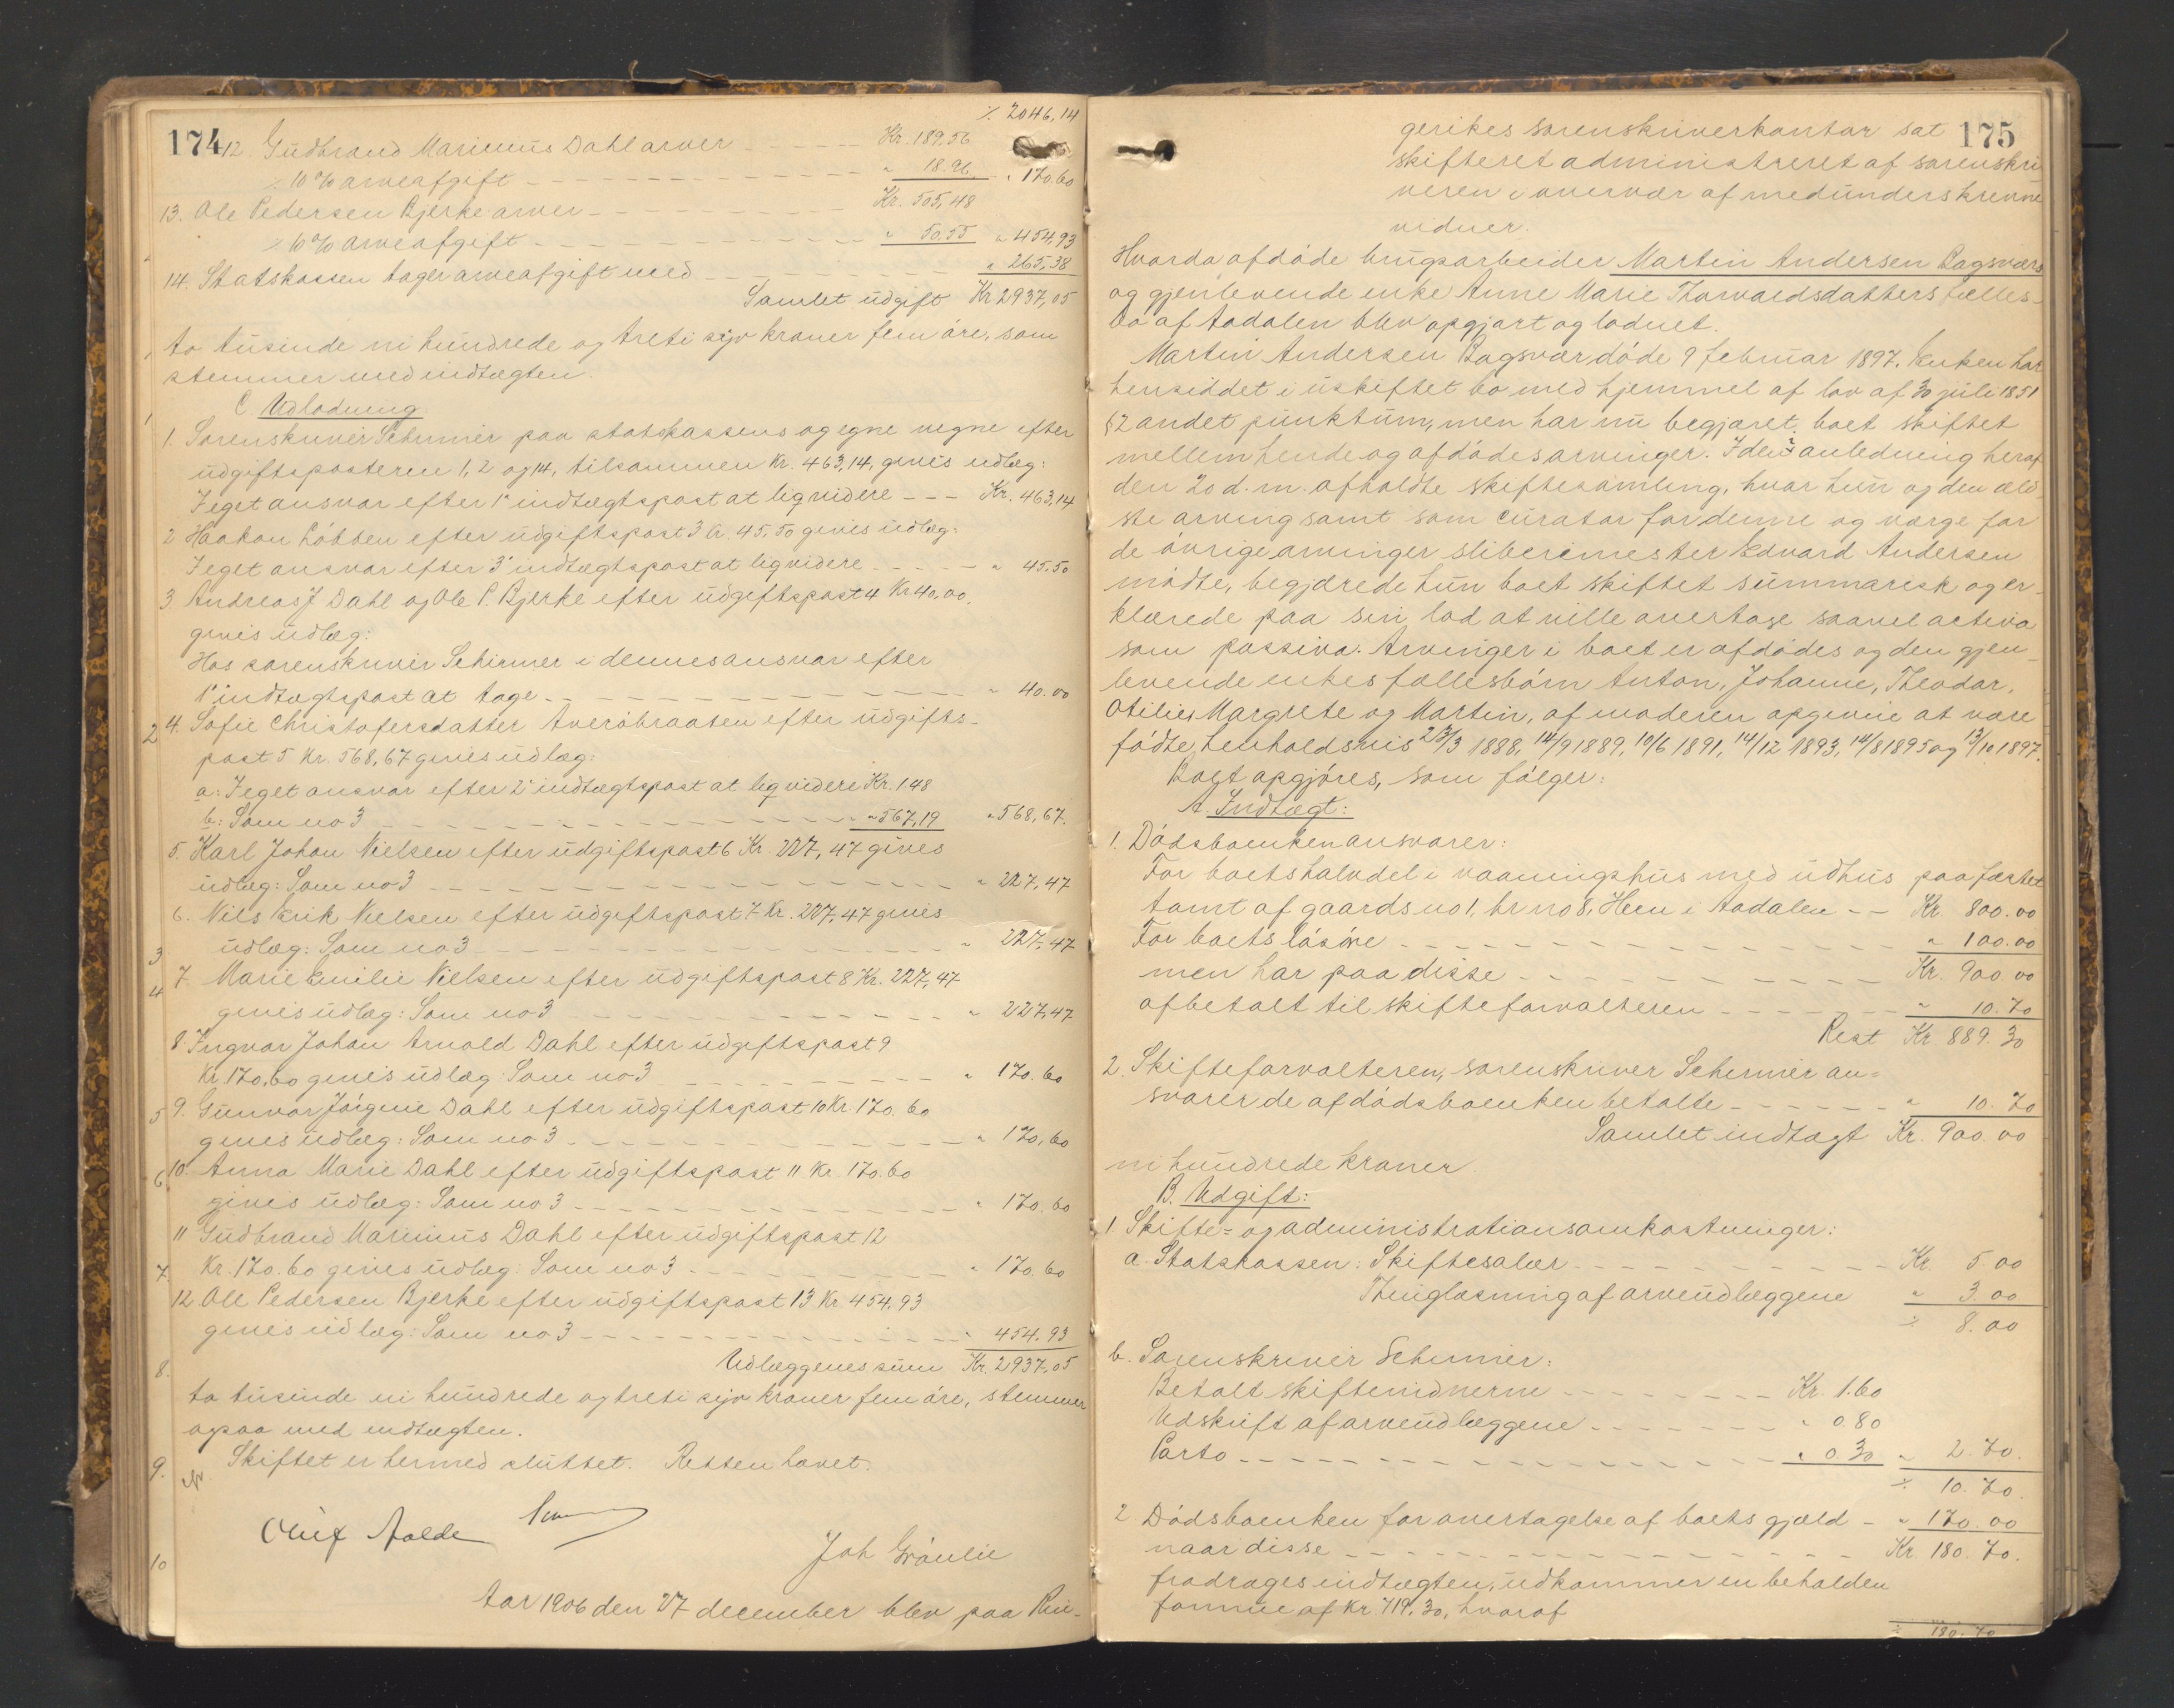 174
⁒ 2046,14
12. Gudbrand Marinius Dahl arver Kr. 189.56
⁒ 10 % arveafgift " 18.96 " 170.60
13. Ole Pedersen Bjerke arver Kr. 505,48
⁒ 10 % arveafgift " 50,55 " 454,93
14. Statskassen tager arveafgift med " 265,38
Samlet udgift Kr 2937,05
to tusinde ni hundrede og treti syv kroner fem øre, som
stemmer med indtægten.
C. Udlodning
1. Sorenskriver Schirmer paa statskassens og egne vegne efter
udgiftsposterne 1, 2 og 14, tilsammen Kr. 463,14, gives udlæg:
I eget ansvar efter 1' indtægtspost at liqvidere Kr. 463,14
2 Haakon Løbben efter udgiftspost 3 Kr. 45,50 gives udlæg:
I eget ansvar efter 3' indtægtspost at liqvidere " 45.50
3. Andreas J Dahl og Ole P. Bjerke efter udgiftspost 4 Kr 40,00.
gives udlæg:
Hos sorenskriver Schirmer i dennes ansvar efter
1' indtægtspost at tage " 40.00
4. Sofie Christofersdatter Averøbraaten efter udgifts-
post 5 Kr. 568,67 gives udlæg:
a: I eget ansvar efter 2' indtægtspost at liqvidere Kr. 1.48
b: Som no 3 " 567,19 " 568,67.
5. Karl Johan Nielsen efter udgiftspost 6 Kr. 227,47 gives
udlæg: Som no 3 " 227,47
6. Nils Erik Nielsen efter udgiftspost 7 Kr. 227,47 gives
udlæg: Som no 3 " 227,47
7. Marie Emilie Nielsen efter udgiftspost 8 Kr. 227,47
gives udlæg: Som no 3 " 227,47
8. Ingvar Johan Arnold Dahl efter udgiftspost 9
Kr. 170.60 gives udlæg: Som no 3 " 170.60
9. Gunvor Jørgine Dahl efter udgiftspost 10 Kr 170.60
gives udlæg: Som no 3 " 170,60
10. Anna Marie Dahl efter udgiftspost 11 Kr. 170.60
gives udlæg: Som no 3 " 170.60
11 Gudbrand Marinius Dahl efter udgiftspost 12
Kr. 170.60 gives udlæg: Som no 3 " 170.60
12 Ole Pedersen Bjerke efter udgiftspost 13 Kr. 454,93
gives udlæg: Som no 3 " 454.93
Udlæggenes sum Kr. 2937,05
to tusinde ni hundrede og treti syv kroner fem øre, stemmer
ogsaa med indtægten.
Skiftet er hermed sluttet. Retten hævet.
Joh Grønlie
Aar 1906 den 27 december blev paa Rin-
175
gerikes sorenskriverkontor sat
skifteret administreret af sorenskri
veren i overvær af medunderskrevne
vidner.
Hvorda afdøde brugsarbeider Martin Andersen Bagsvær
og gjenlevende enke Anne Marie Thorvaldsdatters fælles-
bo af Aadalen blev opgjort og lodnet.
Martin Andersen Bagsvær døde 9 februar 1897. Enken har
hensiddet i uskiftet bo med hjemmel af lov af 30 juli 1851
§ 2 andet punktum, men har nu begjæret boet skiftet
mellem hende og afdødes arvinger. I den i anledning heraf
den 20 d. m. afholdte skiftesamling, hvor hun og den æld
ste arving samt som curator for denne og værge for
de øvrige arvinger sliberimester Edvard Andersen
mødte, begjærede hun boet skiftet summarisk og er-
klærede paa sin lod at ville overtage saavel activa
som passiva. Arvinger i boet er afdødes og den gjen-
levende enkes fællesbørn Anton, Johanne, Theodor,
Otilie, Margrete og Martin, af moderen opgivne at være
fødte, henholdsvis 23/3 1888, 14/9 1889, 10/6 1891, 14/12 1893, 14/8 1895 og 13/10 1897.
Boet opgjøres, som følger:
A. Indtægt:
1. Dødsboenken ansvarer:
For boets halvdel i vaaningshus med udhus paa fæstet
tomt af gaards no 1, br no 8, Hen i Aadalen Kr. 800.00
For boets løsøre " 100.00
men har paa disse Kr. 900.00
afbetalt til skifteforvalteren " 10.70
Rest Kr. 889.30
2. Skifteforvalteren, sorenskriver Schirmer an-
svarer de af dødsboenken betalte " 10.70
Samlet indtægt Kr. 900.00
ni hundrede kroner
B. Udgift:
1 Skifte- og administrationsomkostninger:
a. Statskassen: Skiftesalær Kr. 5.00
Thinglæsning af arveudlæggene " 3.00
⁒ 8.00
b. Sorenskriver Schirmer:
Betalt skiftevidnerne Kr. 1.60
Udskrift af arveudlæggene " 0.80
Porto " 0.30 " 2.70.
⁒ 10.70.
2. Dødsboenken for overtagelse af boets gjæld " 170.00
naar disse Kr. 180.70.
fradrages indtægten, udkommer en beholden
formue af Kr 719.30, hvoraf
⁒ 180.70